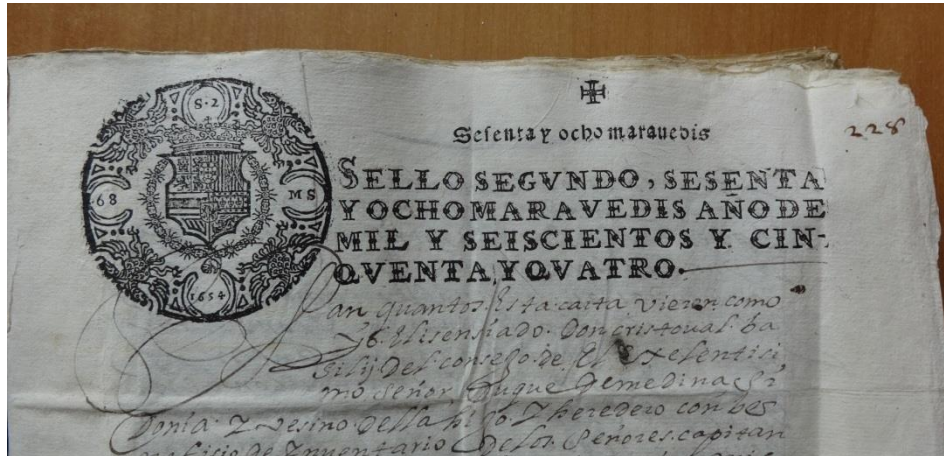 S·2
68
MS
1654
Sesenta y ocho marauedis
228
SELLO SEGVNDO, SESENTA
Y OCHO MARAVEDIS AÑO DE
MIL Y SEISCIENTOS Y CIN-
QVENTA, Y QVATRO.
an quantos Esta carta vieren como
Yo El lisensiado Don cristoual ba
silij del consego de El Exselentisi
mo señor Duque de medina si
donia y vesino della hijo y heredero con bes
nefisio de Ynventario de los señores capitan